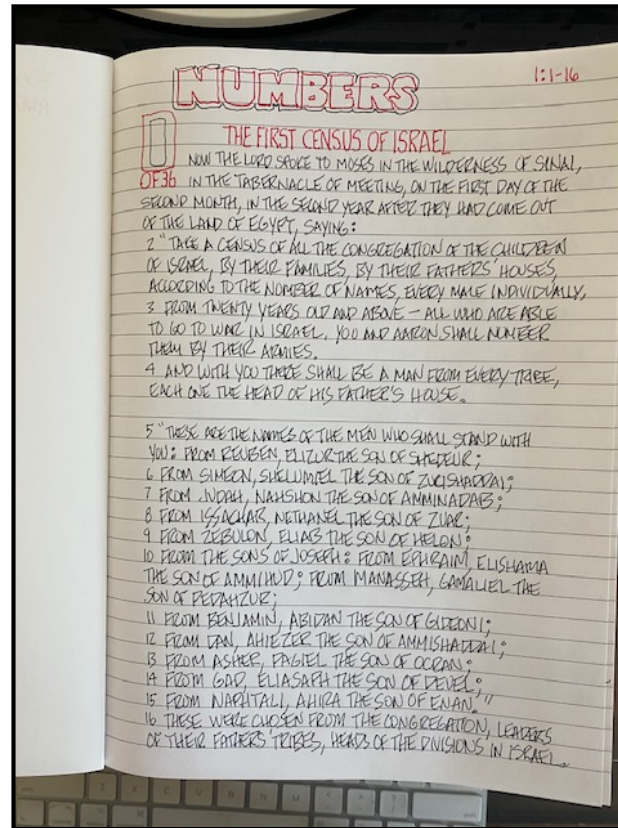 NUMBERS
1:1-16
THE FIRST CENSUS OF ISRAEL
1
OF 36
NOW THE LORD SPOKE TO MOSES IN THE WILDERNESS OF SINAI,
IN THE TABERNACLE OF MEETING, ON THE FIRST DAY OF THE
SECOND MONTH, IN THE SECOND YEAR AFTER THEY HAD COME OUT
OF THE LAND OF EGYPT, SAYING:
2 "TAKE A CENSUS OF ALL THE CONGREGATION OF THE CHILDREN
OF ISRAEL, BY THEIR FAMILIES, BY THEIR FATHERS' HOUSES,
ACCORDING TO THE NUMBER OF NAMES, EVERY MALE INDIVIDUALLY,
3 FROM TWENTY YEARS OLD AND ABOVE – ALL WHO ARE ABLE
TO GO TO WAR IN ISRAEL, YOU AND AARON SHALL NUMBER
THEM BY THEIR ARMIES.
4 AND WITH YOU THERE SHALL BE A MAN FROM EVERY TRIBE,
EACH ONE THE HEAD OF HIS FATHER'S HOUSE.
5 "THESE ARE THE NAMES OF THE MEN WHO SHALL STAND WITH
YOU: FROM REUBEN, ELIZUR THE SON OF SHEDEUR;
6 FROM SIMEON, SHELUMIEL THE SON OF ZURISHADDAI;
7 FROM JUDAH, NAHSHON THE SON OF AMMINADAB;
8 FROM ISSACHAR, NETHANEL THE SON OF ZUAR;
9 FROM ZEBULON, ELIAB THE SON OF HELON;
10 FROM THE SONS OF JOSEPH: FROM EPHRAIM, ELISHAMA
THE SON OF AMMIHUD; FROM MANASSEH, GAMALIEL THE
SON OF PEDAHZUR;
11 FROM BENJAMIN, ABIDAN THE SON OF GIDEONI;
12 FROM DAN, AHIEZER THE SON OF AMMISHADDAI;
13 FROM ASHER, PAGIEL THE SON OF OCRAN;
14 FROM GAD, ELIASAPH THE SON OF DEUEL;
15 FROM NAPHTALI, AHIRA THE SON OF ENAN."
16 THESE WERE CHOSEN FROM THE CONGREGATION, LEADERS
OF THEIR FATHERS' TRIBES, HEADS OF THE DIVISIONS IN ISRAEL.
Z X C V B N M